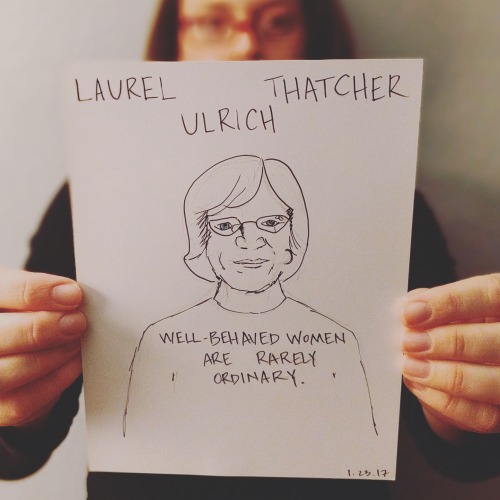 LAUREL THATCHER
ULRICH
WELL-BEHAVED WOMEN
ARE RARELY
ORDINARY.
1.23.17